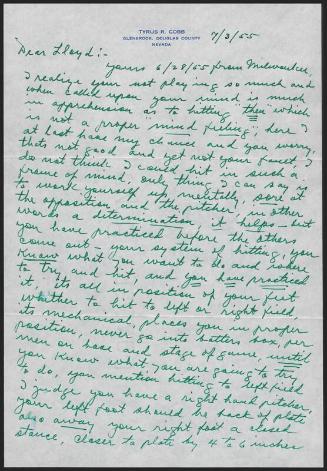 TYRUS R. COBB
GLENBROOK, DOUGLAS COUNTY
NEVADA
7/3/55
Dear Lloyd:-
Yours 6/28/55 from Milwaukee,
I realize your not playing so much and
when called upon your mind is much
in apprehension as to hitting, then which
is not a proper mind feeling, here I
at last have my chance and you worry,
thats not good and yet not your fault, I
do not think I could hit in such a
frame of mind, only thing I can say is
to work yourself up mentally, sore at
the opposition and the pitcher, in other
words a determination, it helps - but
you have practiced before the others
come out - your system of hitting, you
know what you want to do and where
to try and hit, and you have practiced
it, its all in position of your feet
whether to hit to left or right field
its mechanical, places you in proper
position, never go into batters box, per
men on base and stage of game, until
you know what you are going to try
to do, you mention hitting to left field
I judge you have a right hand pitcher,
your left foot should be back of plate
also away your right foot a closed
stance, closer to plate by 4 to 6 inches